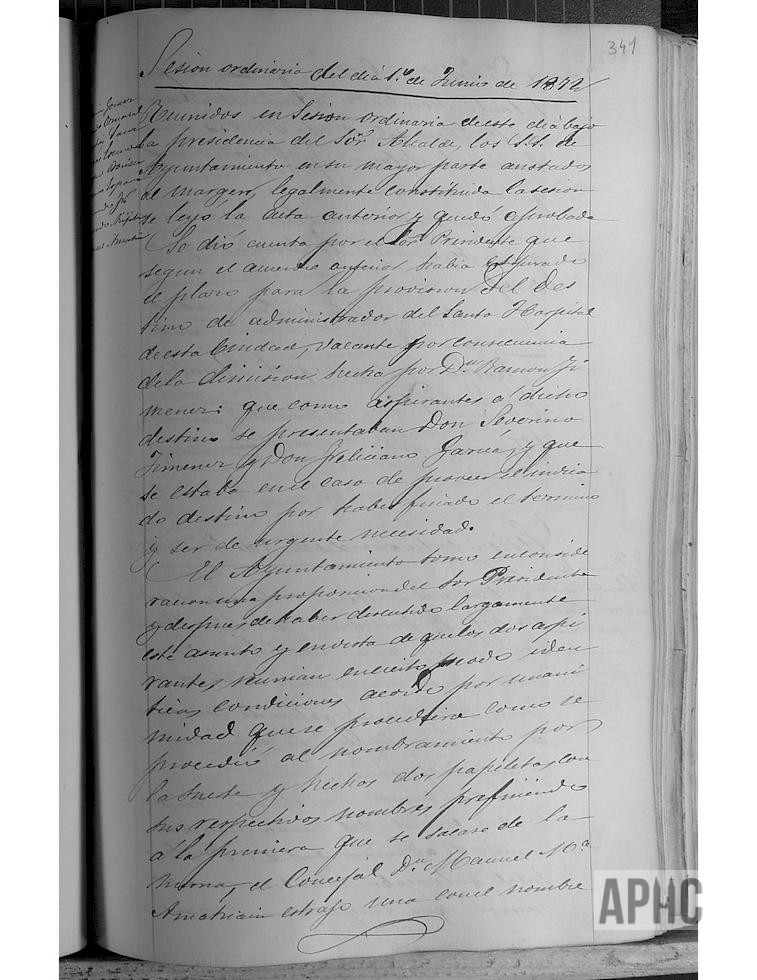 341
Sesion ordinaria del dia 1.º de Junio de 1872
Reunidos en Sesion ordinaria de este dia bajo
la presidencia del Sor. Alcalde, los S.S. de
Ayuntamiento en su mayor parte anotados
al margen, legalmente constituida la sesion
se leyó la acta anterior y quedó aprobada
Se dió cuenta por el Sor Presidente que
segun el acuerdo anterior habia
el plazo para la provision del des
tino de administrador del Santo Hospital
de esta Ciudad, vacante por consecuencia
de la dimision hecha por Dn. Ramon Ji
menez: que como aspirantes á dicho
destino se presentaban Don Severino
Jimenez y Don Feliciano Garcia, y que
se estaba en el caso de proveer el indica
do destino por haber finado el termino
y ser de urgente necesidad.
El Ayuntamiento tomo en conside
racion la proposicion del Sor Presidente
y despues de haber discutido largamente
este asunto y en vista de que los dos aspi
rantes reunian en cierto modo iden
ticas condiciones acordó por unani
midad que se procediera como se
procedió al nombramiento por
la suerte y hechas dos papeletas con
sus respectivos nombres prefiriendo
á la primera que se sacase de la
misma, el Concejal Dn. Manuel Ma
Amatriain estrajo una con el nombre
APHC